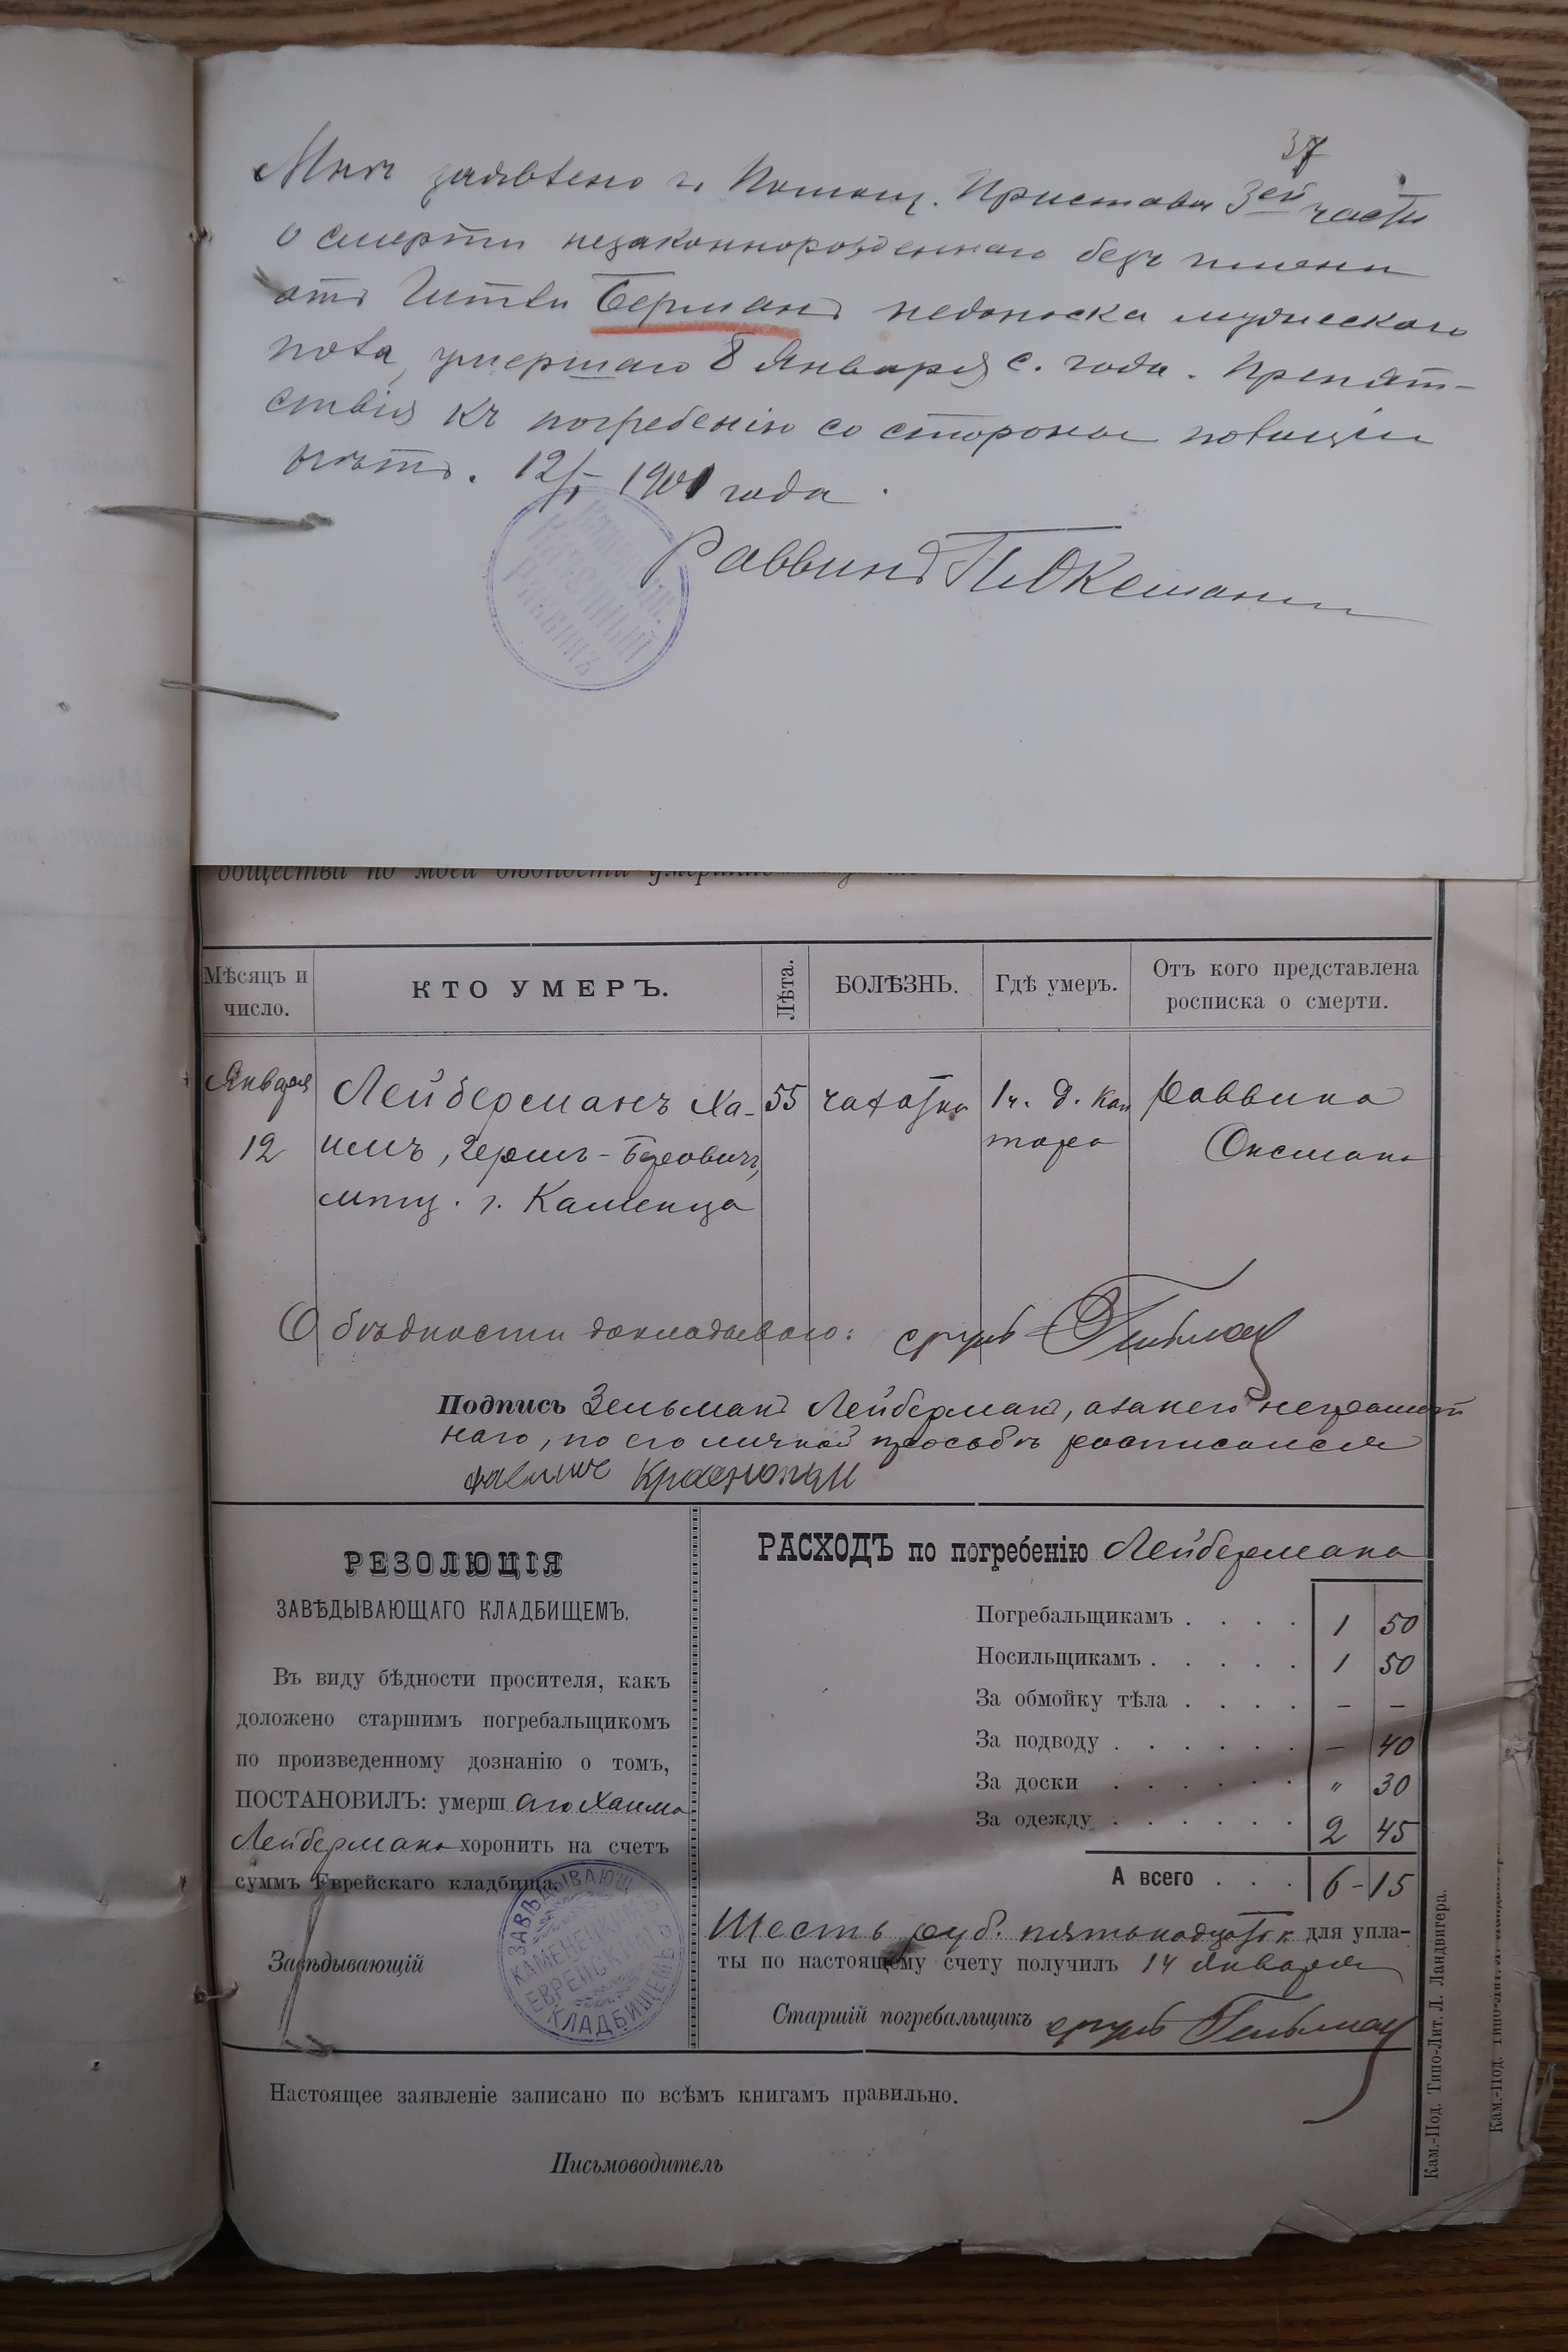 37
Мнѣ заявлено г. Помощ. Пристава 3ей части
о смерти незаконнорожденнаго безъ имени
отъ Гитли Берманъ недоноска мужескаго
пола, умершаго 8 Января с. года. Препят-
ствія къ погребенію со стороны полиціи
нѣтъ. 12/I 1901 года.
Раввинъ Оксманъ
КАЗЕННЫЙ
РАВВИНЪ
общества по моей бѣдности
Мѣсяцъ и число.
КТО УМЕРЪ.
Лѣта.
БОЛѢЗНЬ.
Гдѣ умеръ.
Отъ кого представлена
росписка о смерти.
Января
12
Лейберманъ Ха-
имъ, Герш-Беровичъ,
мѣщ. г. Каменца
55
чахотка
1 ч. д. Кан
тора
Раввина
Оксмана
О бѣдности докладываю:
Подпись Зельманъ Лейберманъ, а за него неграмот
наго, по его личной просьбѣ росписался
РЕЗОЛЮЦІЯ
ЗАВѢДЫВАЮЩАГО КЛАДБИЩЕМЪ.
Въ виду бѣдности просителя, какъ
доложено старшимъ погребальщикомъ
по произведенному дознанію о томъ,
ПОСТАНОВИЛЪ: умерш аго Хаима
Лейбермана хоронить на счетъ
суммъ Еврейскаго кладбища.
Завѣдывающій
ЗАВѢДЫВАЮЩ.
КАМЕНЕЦКИМЪ
ЕВРЕЙСКИМЪ
КЛАДБИЩЕМЪ
РАСХОДЪ по погребенію Лейбермана
Погребальщикамъ . . . . 1 50
Носильщикамъ . . . . . 1 50
За обмойку тѣла . . . . – –
За подводу . . . . . . – 40
За доски . . . . . . " 30
За одежду . . . . . . 2 45
А всего . . . 6 - 15
Шесть руб. пятнадцать к. для упла-
ты по настоящему счету получилъ 14 Января
Старшій погребальщикъ
Настоящее заявленіе записано по всѣмъ книгамъ правильно.
Письмоводитель
Кам.-Под. Типо-Лит. Л. Ландвигера.
Кам.-Под. Типо-Лит.